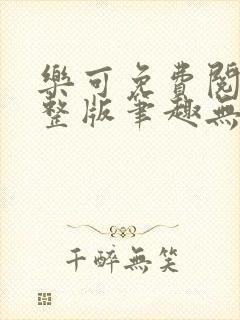 樂可免費閱
整版筆趣無
千醉無笑